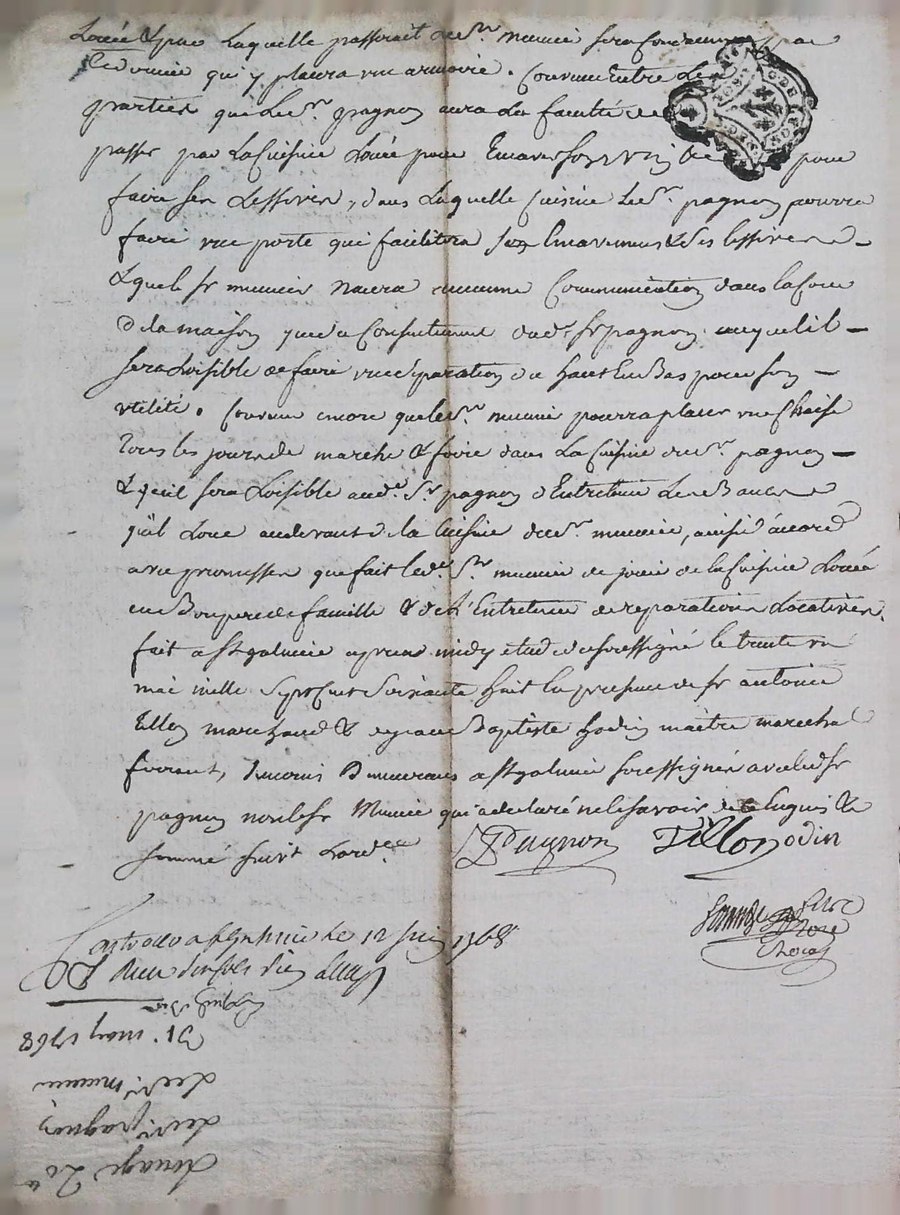 Louée & par laquelle passerait le sr. munier sera condamnée par
led. munier qui y placera une armoire. Convenu Entre les
parties que le sr. pagnon aura la faculté de
passer par la Cuisine Louée pour Encaver son vin & pour
faire ses Lessives, dans laquelle Cuisine le sr. pagnon pourra
faire une porte qui facilitera ses Encavements & ses lessives
Lequel sr munier n'aura aucune Communication dans la Cour
de la maison que du Consentement dud. sr pagnon auquel il
sera Loisible de faire une séparation de haut En Bas pour son
utilité. Convenu encore que le sr. munier pourra placer une Chaise
tous les jours de marché & foire dans la Cuisine du sr. pagnon
& qu'il sera Loisible aud. Sr pagnon d'Entretenir les Bancs
qu'il Loue au devant de la Cuisine du sr. munier, ainsi accordé
avec promesses que fait led. Sr. munier de jouir de la Cuisine Louée
en Bon pere de famille & de L'Entretenir de reparations Locatives.
fait a St galmier apres midy etude du soussigné le trente un
mai mille Sept Cent Soixante huit En presence de sr antoine
tillon marchand & de jean Baptiste hodin maître marechal
ferrant, temoins Demeurant a St galmier soussignés avec led sr
pagnon non led sr Munier qui a declaré ne le savoir de ce Enquis &
sommé suivt Lord.ce Pagnon Tillon odin
nore Royal
Controllé a St galmier Le 12 juin 1768
Reçu
31. may 1768
Le sr. munier
Le sr. pagnon
Louage